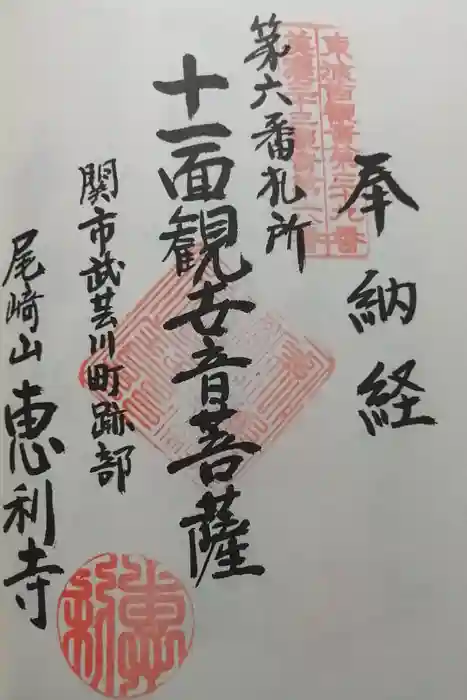 奉納経
第六番札所
十一面観世音菩薩
関市武芸川町跡部
尾崎山恵利寺